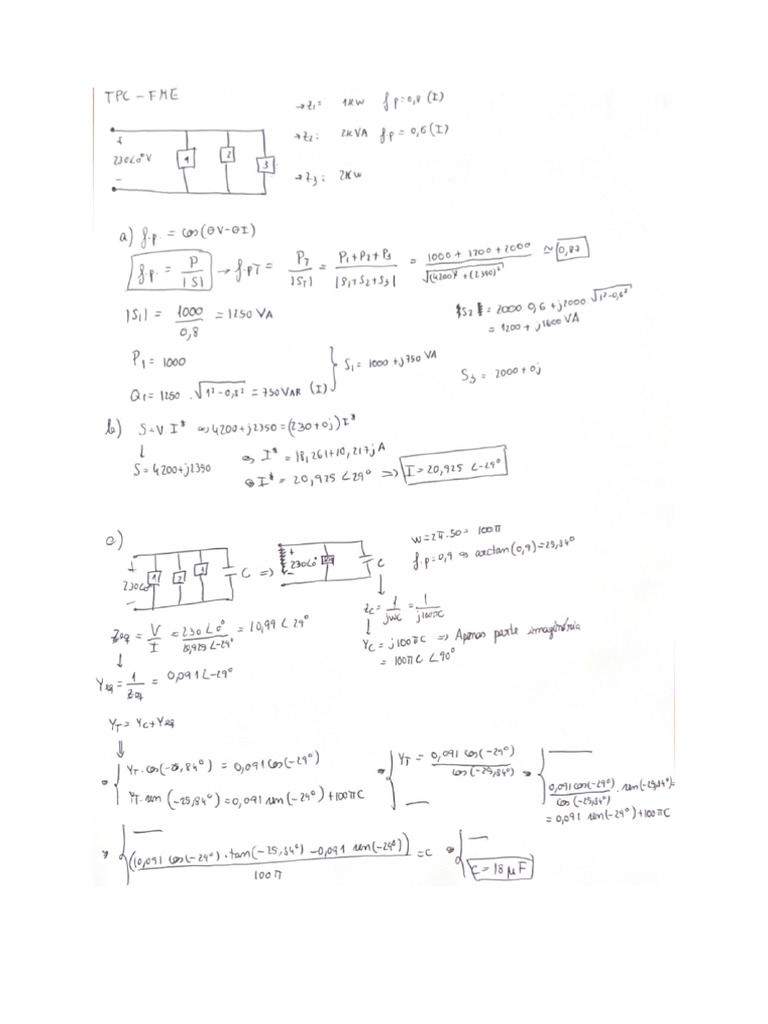 TPC - FME
→ Z1: 1KW f.p=0,8 (I)
→ Z2: 2KVA f.p=0,6(I)
→ Z3: 2KW
+
230∠0° V
-
1
2
3
a) f.p. = cos(θV-θI)
f.p. = P/|S| → f.pT = PT/|ST| = (P1+P2+P3)/|S1+S2+S3| = (1000+1200+2000)/√((4200)²+(2350)²) ≃ 0,87
|S1| = 1000/0,8 = 1250 VA
S2 = 2000 0,6 + j2000 √(1²-0,6²)
= 1200 + j1600 VA
P1 = 1000
Q1 = 1250 . √(1²-0,8²) = 750 VAR (I)
} S1 = 1000 + j750 VA
S3 = 2000 + 0j
b) S=V.I* ⇔ 4200+j2350=(230+0j)I*
↓
S=4200+j2350
⇔ I* = 18,261+10,217j A
⇔ I* = 20,925 ∠29° => I = 20,925 ∠-29°
c)
+
230∠0°
-
1
2
3
C =>
+
230∠0°
-
C
w=2π.50= 100π
f.p=0,9 ⇔ arctan(0,9)=25,84°
Zeq = V/I = 230∠0°/20,925∠-29° = 10,99 ∠29°
Zc = 1/jwC = 1/j100πC
↓
Yc = j100πC => Apenas parte imaginária
= 100πC ∠90°
↓
Yeq = 1/Zeq = 0,091∠-29°
YT = Yc+Yeq
⇓
⇔ { YT.cos(-25,84°) = 0,091cos(-29°)
YT.sen(-25,84°)=0,091sen(-29°)+100πC
⇔ { YT = 0,091cos(-29°)/cos(-25,84°)
—
⇔ { —
0,091cos(-29°)/cos(-25,84°) . sen(-25,84°)=
= 0,091 sen(-29°)+100πC
⇔ { —
((0,091 cos(-29°).tan(-25,84°)-0,091 sen(-29°))/100π = C
⇔ { —
C = 18 μF